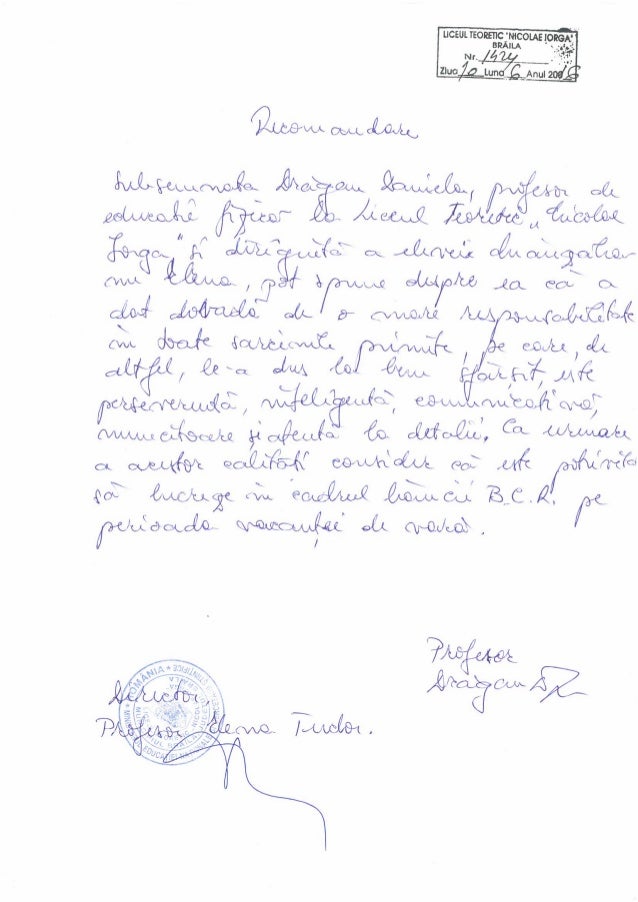 LICEUL TEORETIC "NICOLAE IORGA"
BRĂILA
Nr. 1424
Ziua 10 Luna 6 Anul 2016
Recomandare
Subsemnata Drăgan Daniela, profesor de
educație fizică la Liceul Teoretic „Nicolae
Iorga" și dirigintă a elevei
Elena, pot spune despre ea că a
dat dovadă de o mare responsabilitate
în toate sarcinile primite, pe care, de
altfel, le-a dus la bun sfârșit, este
perseverentă, inteligentă, comunicativă,
muncitoare și atentă la detalii. Ca urmare
a acestor calități consider că este potrivită
să lucreze în cadrul băncii B.C.R. pe
perioada vacanței de vară.
Profesor
Drăgan D
Director,
Profesor Elena Tudor.
ROMÂNIA